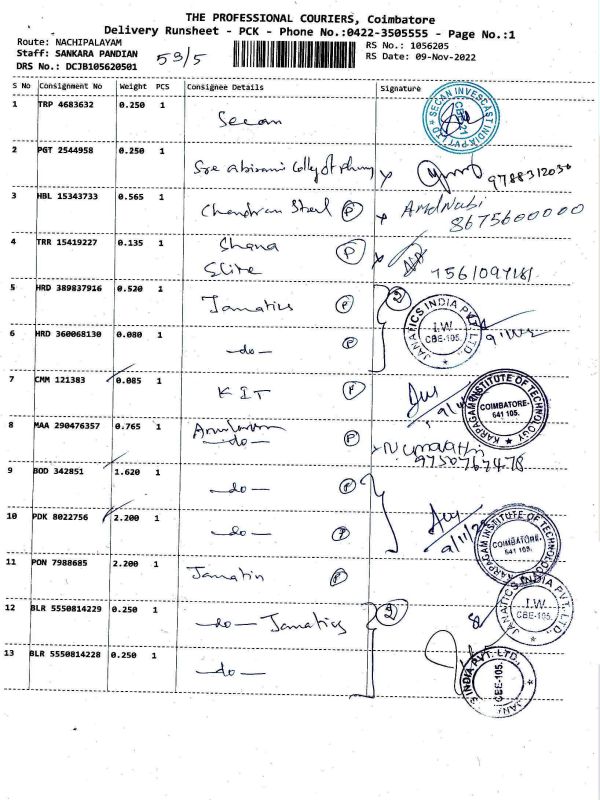 THE PROFESSIONAL COURIERS, Coimbatore
Delivery Runsheet - PCK - Phone No.:0422-3505555 - Page No.:1
Route: NACHIPALAYAM RS No.: 1056205
Staff: SANKARA PANDIAN 59/5 RS Date: 09-Nov-2022
DRS No.: DCJB105620501
S No Consignment No Weight PCS Consignee Details Signature
1 TRP 4683632 0.250 1 Secan SECAN INVESCAST INDIA PVT LTD CBE-21
2 PGT 2544958 0.250 1 Sre abirami 9788312030
3 HBL 15343733 0.565 1 Chandran Steel P 8675600000
4 TRR 15419227 0.135 1 Shana P
5 HRD 389837916 0.520 1 Janatics P 2 JANATICS INDIA PVT. LTD., I.W CBE-105.
6 HRD 360068130 0.080 1 -do- P
7 CMM 121383 0.085 1 KIT P KARPAGAM INSTITUTE OF TECHNOLOGY COIMBATORE- 641 105.
8 MAA 290476357 0.765 1 -do- P 9750767478
9 BOD 342851 1.620 1 -do- P
10 PDK 8022756 2.200 1 -do- P 9/11/22 KARPAGAM INSTITUTE OF TECHNOLOGY COIMBATORE. 641 105.
11 PON 7988685 2.200 1 Janatin P
12 BLR 5550814229 0.250 1 -do- Janatics 2 JANATICS INDIA PVT. LTD., I.W CBE-105.
13 BLR 5550814228 0.250 1 -do- INDIA PVT. LTD., CBE-105.